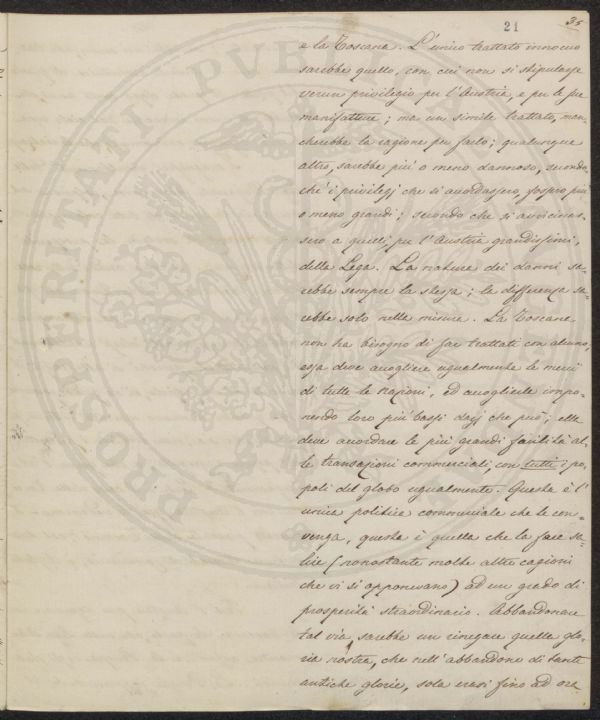 21
35
e la Toscana. L'unico trattato innocuo
sarebbe quello, con cui non si stipulasse
verun privilegio per l'Austria, e per le sue
manifatture; ma un simile trattato, man-
cherebbe la ragione per farlo; qualunque
altro, sarebbe più o meno dannoso, secondo,
chè i privilegj che si accordassero, fossero più
o meno grandi; secondo che si avvicinas-
sero a quelli, per l'Austria grandissimi,
della Lega. La natura dei danni sa-
rebbe sempre la stessa; la differenza sa-
rebbe solo nelle misure. La Toscana
non ha bisogno di far trattati con alcuno,
essa deve accogliere ugualmente le merci
di tutte le nazioni, ed accoglierle impo-
nendo loro più bassi dazj che può; ella
deve accordare le più grandi facilità al-
le transazioni commerciali, con tutti i po-
poli del globo ugualmente. Questa è l'
unica politica commerciale che le con-
venga, questa è quella che la fece sa-
lire (nonostante molte altre cagioni
che vi si opponevano) ad un grado di
prosperità straordinario. Abbandonare
tal via, sarebbe un rinegare quella glo-
ria nostra, che nell'abbandono di tante
antiche glorie, sola erasi fino ad ora
PROSPERITATI PVBLICAE